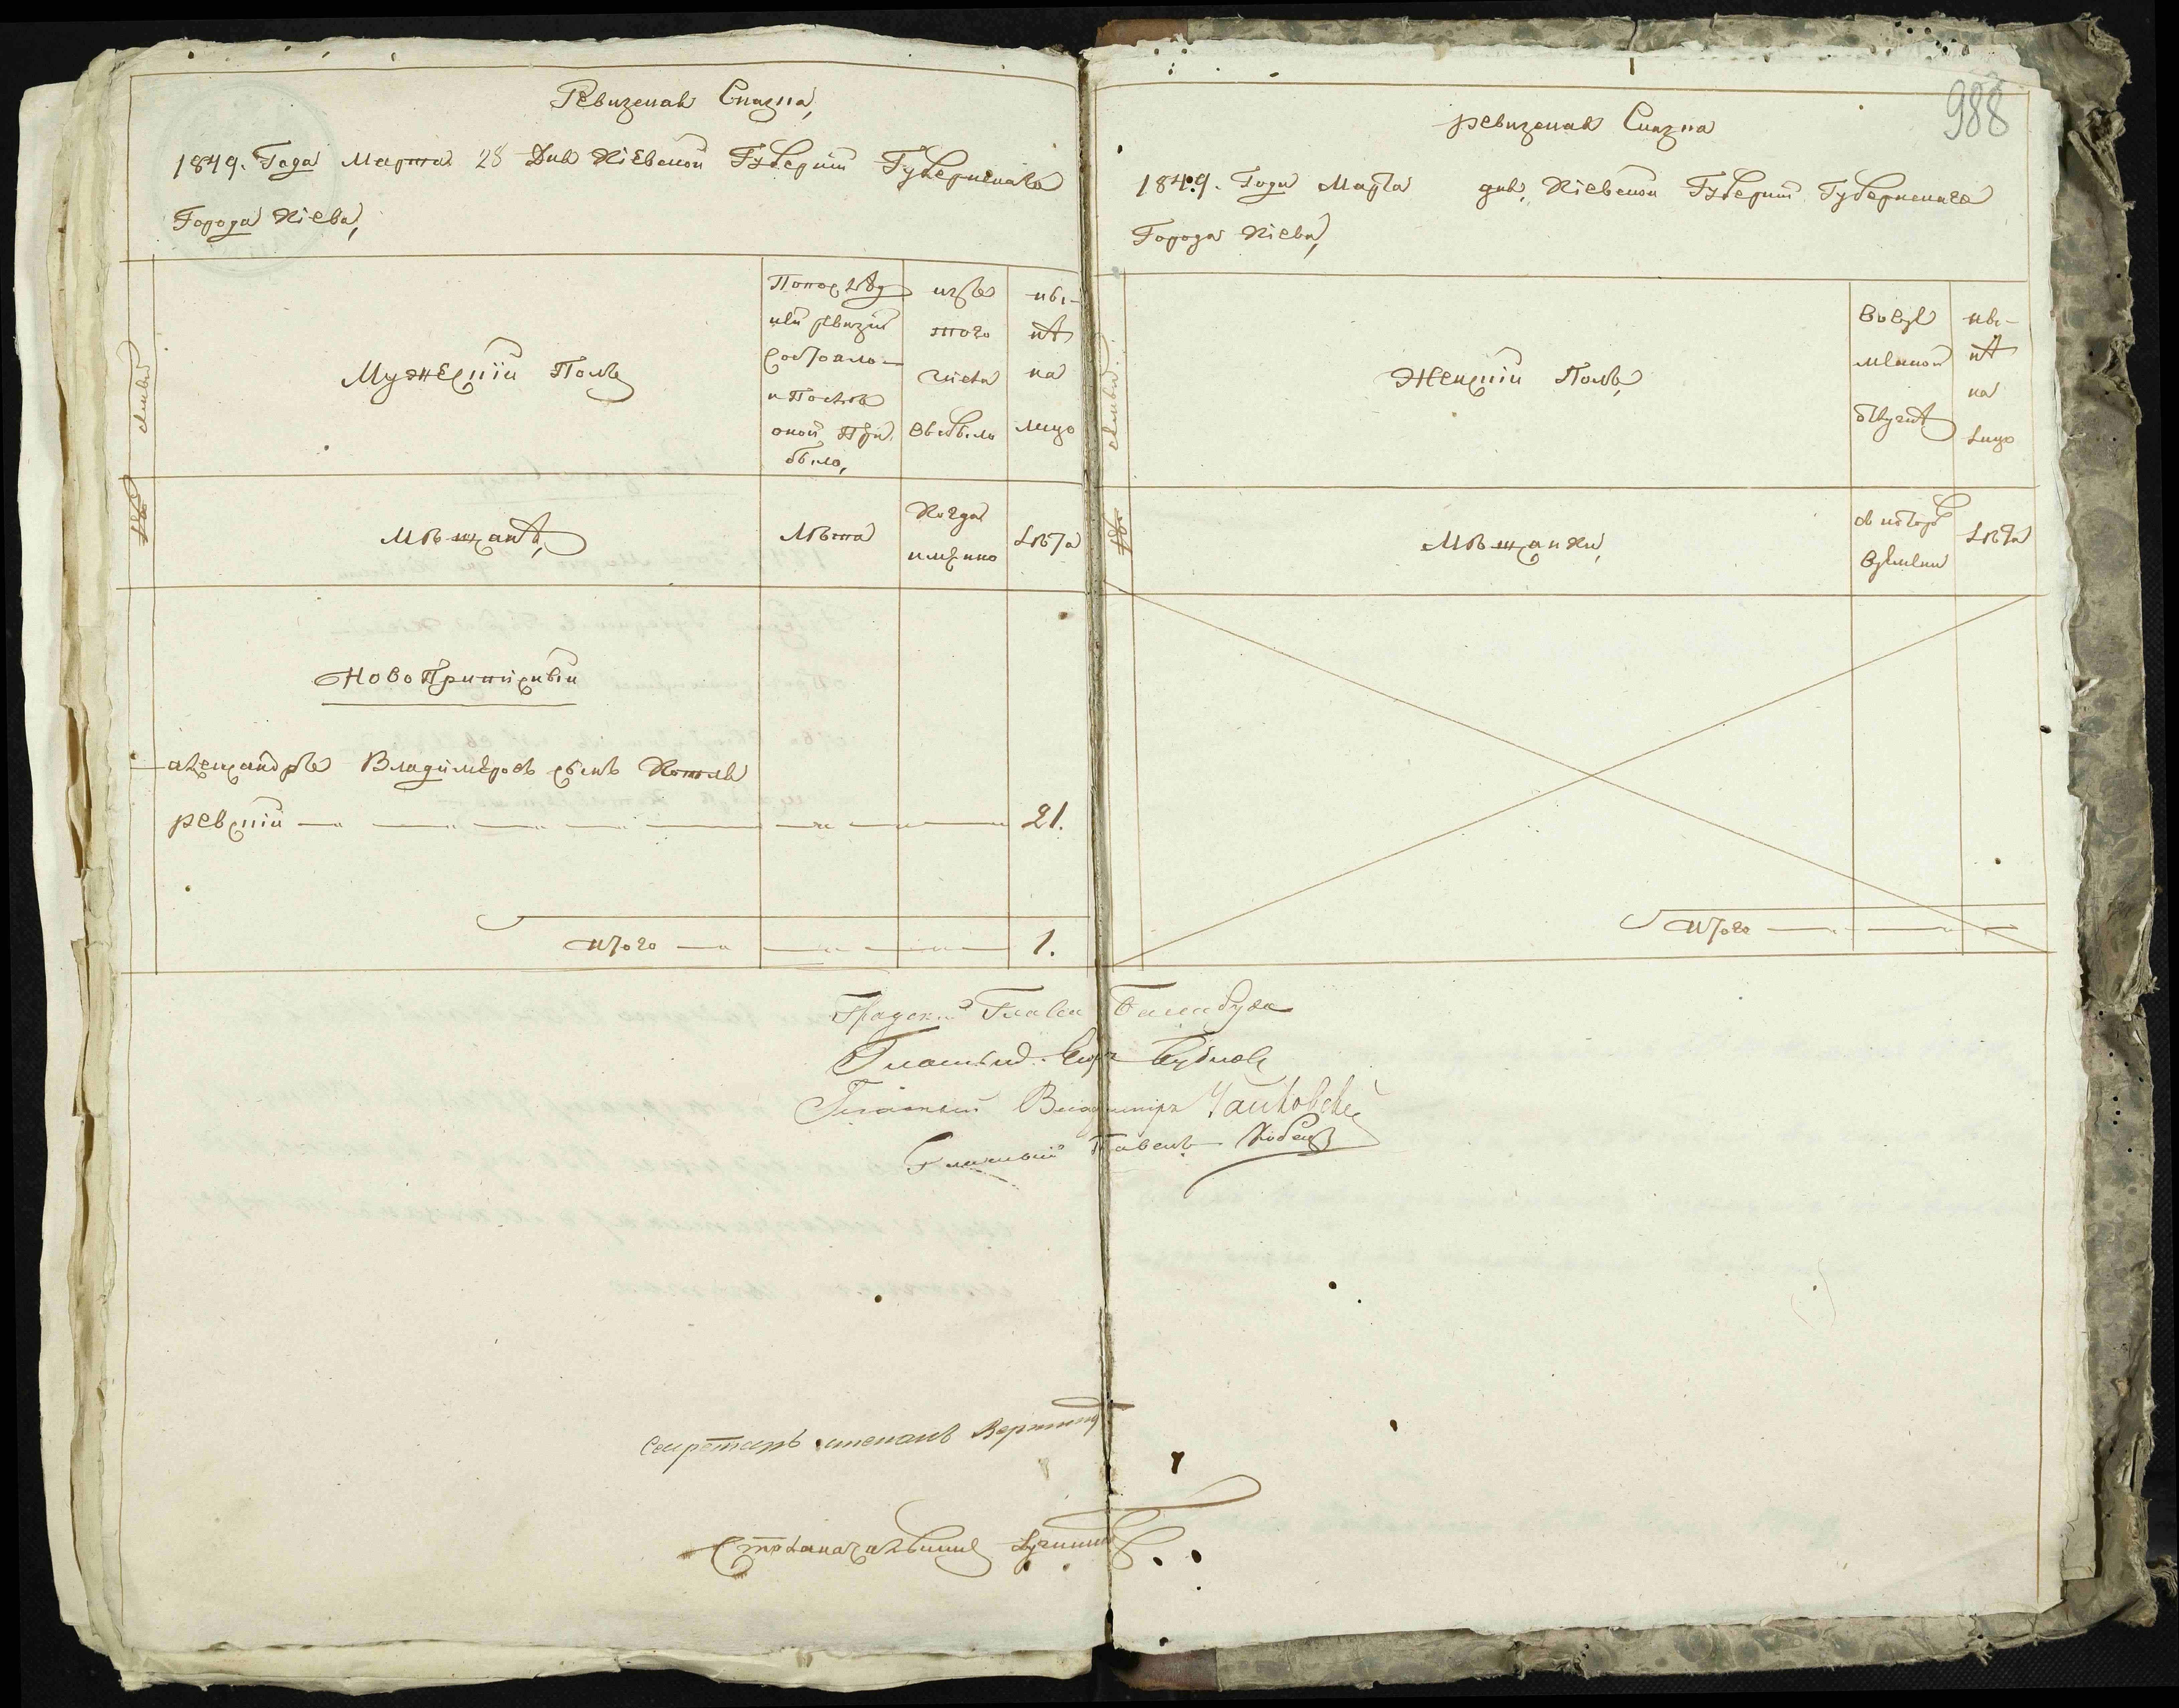 Ревизская Сказка,
1849. Года Марта 28 Дня Кіевской Губерніи Губернскаго
Города Кіева,
Мужескій Полъ
По послѣд
ней ревизіи
состояло
и После
оной При
было,
изъ
того
числа
выбыло
ны-
нѣ
на
лицо
семьи
Мѣщанѣ,
Лѣта
Когда
имянно
Лѣта
НовоПриписный
александръ Владиміровъ сынъ Котля
ревскій
21.
итого
1.
988
ревизская Сказка
1849. Года Марта дня, Кіевской Губерніи Губернскаго
Города Кіева,
семьи
Женскій Полъ,
Во вре
менной
отлучкѣ
ны-
нѣ
на
Лицо
Мѣщанки,
съ котораго
времени
Лѣта
итого
Градскій Глава Балабуха
Гласный Егоръ Бубновъ
Гласный Владиміръ Чайковскій
Гласный Павелъ
Секретарь степанъ
Столоначальникъ